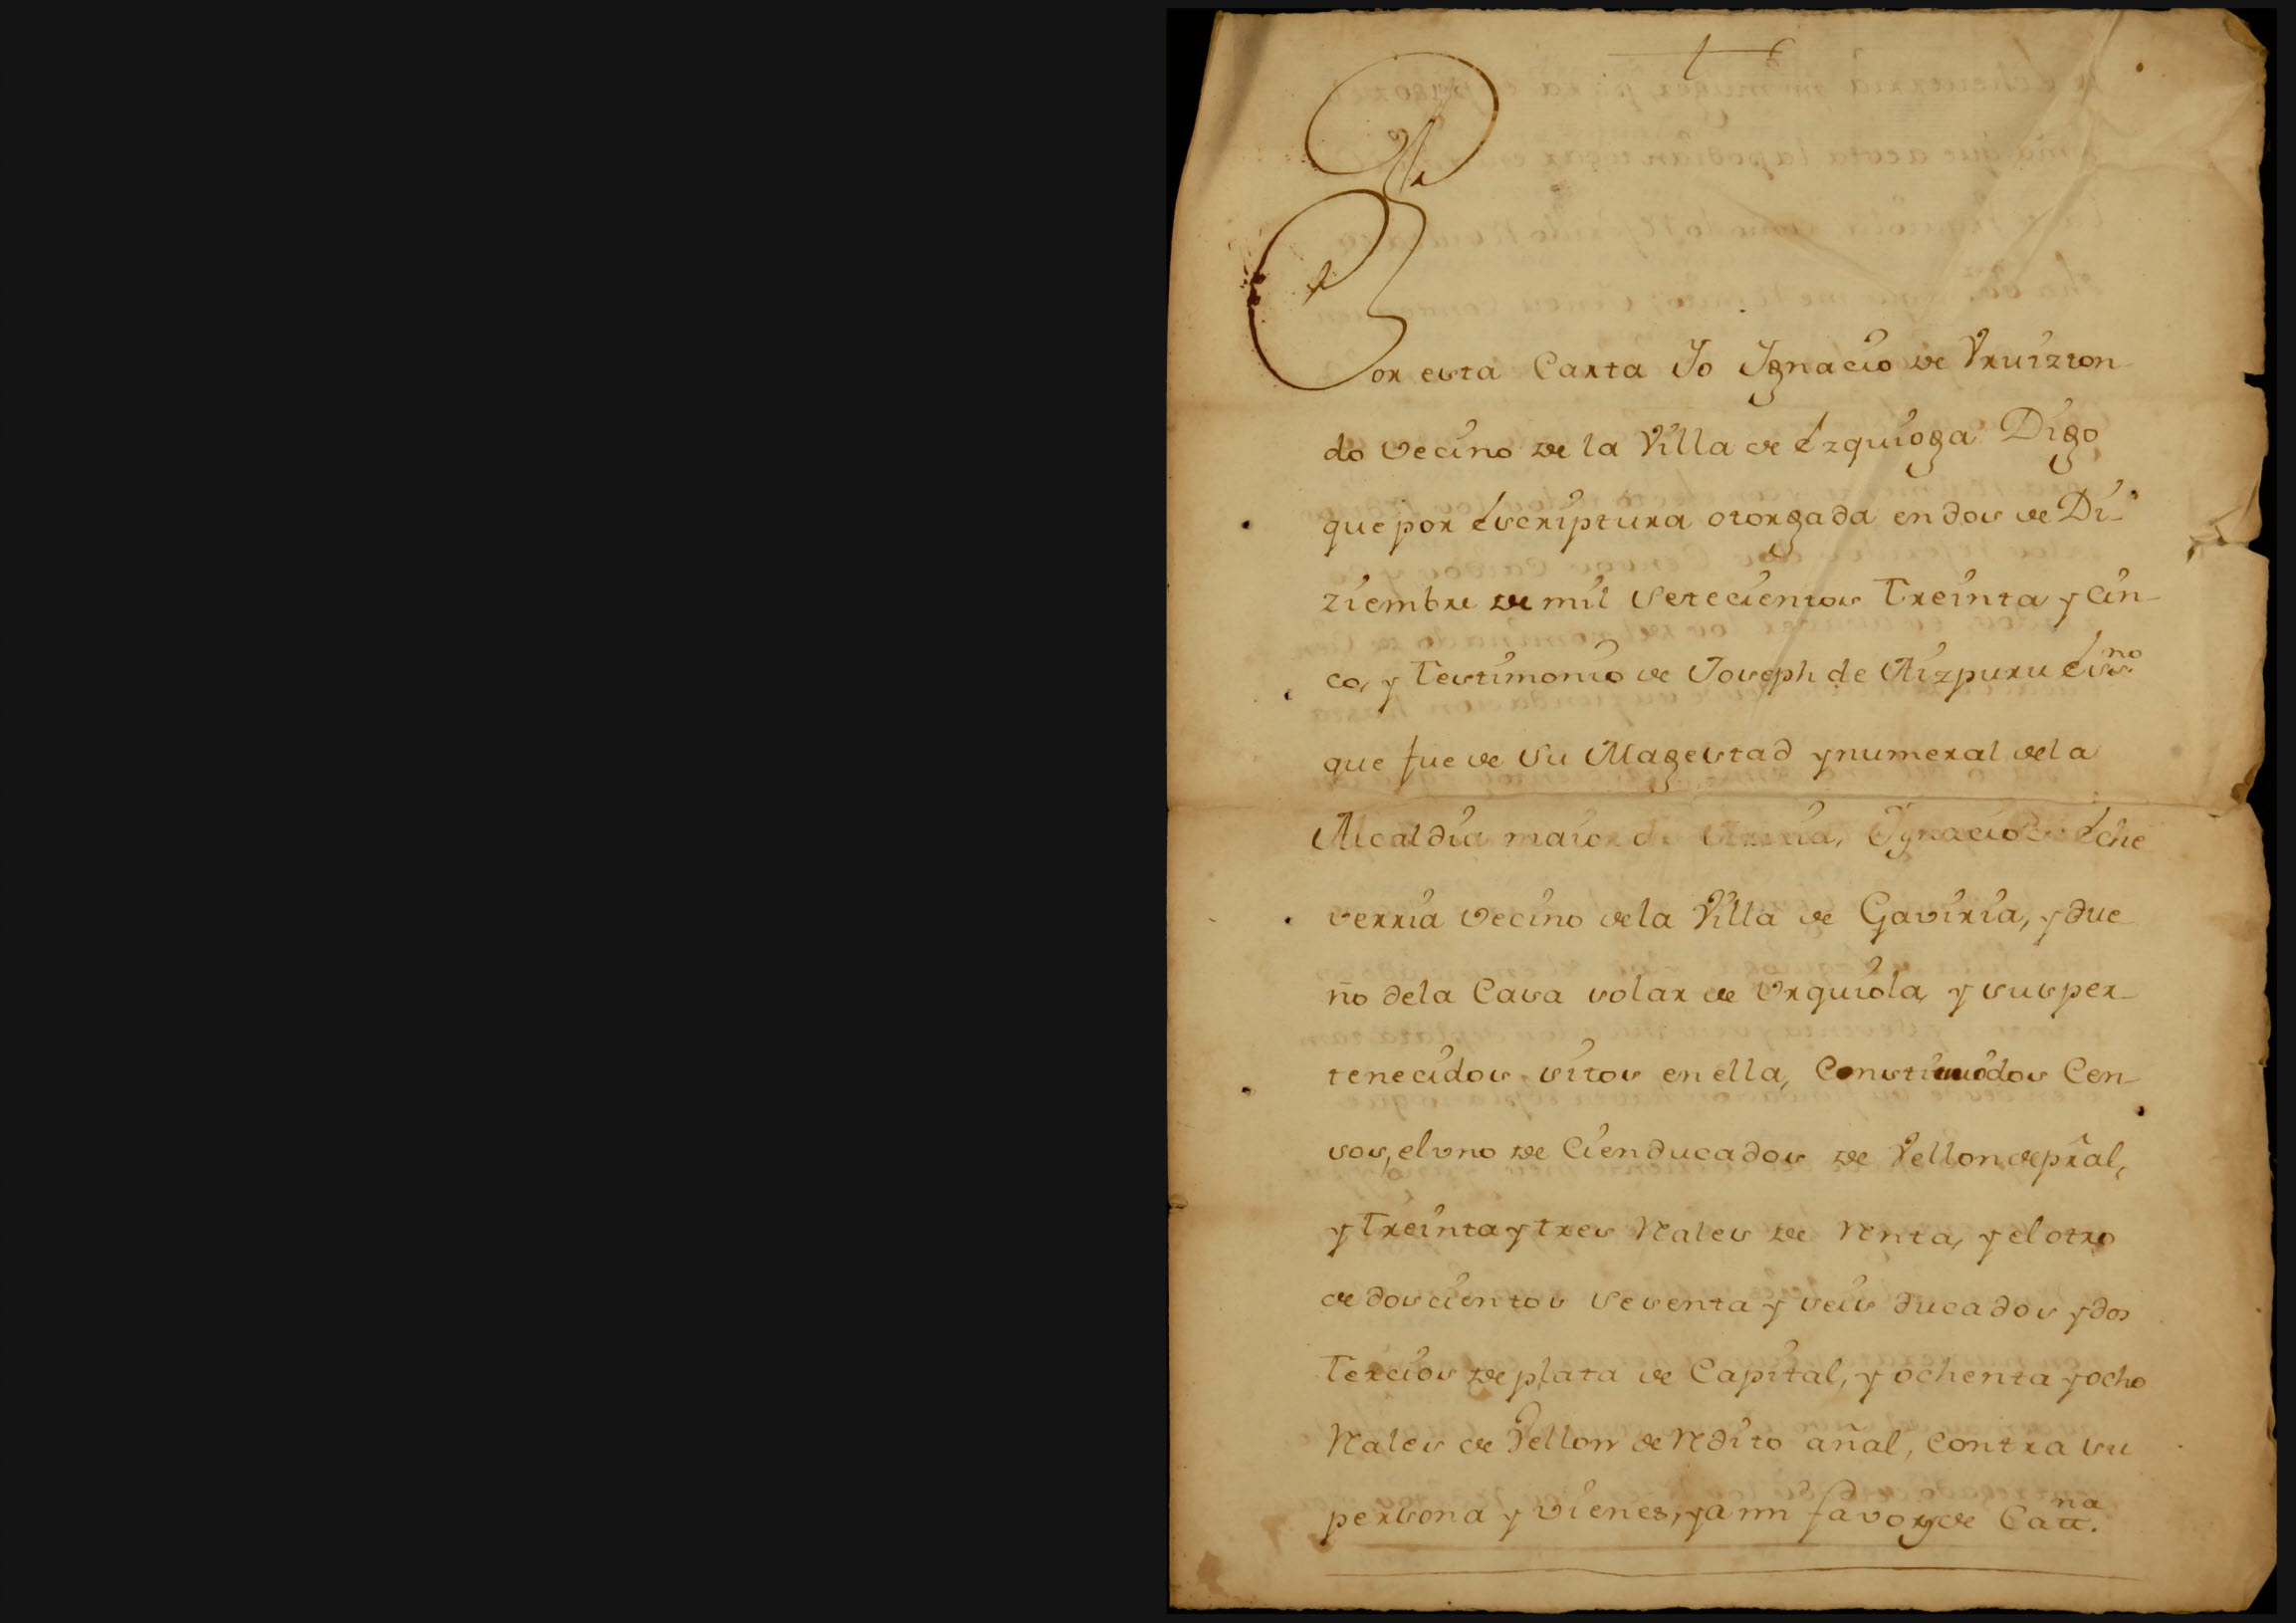 Por esta Carta Io Ignacio de Vruizton
do vecino de la Villa de Ezquioga Digo
que por escriptura otorgada en dos de Di-
ziembre de mil setecientos Treinta y cin-
co, y Testimonio de Joseph de Aizpuru Essno.
que fue de su Magestad y numeral de la
Alcaldia maior de Arria, Ignacio de Eche
verria vecino de la Villa de Gaviria, y due
ño de la Casa solar de Vrquiola, y sus per-
tenecidos sitos en ella, Constituio dos Cen-
sos, el uno de Cien ducados de Vellon de pral,
y Treinta y tres Rales de Renta, y el otro
de doscientos sesenta y seis ducados y dos
Tercios de plata de Capital, y ochenta y ocho
Rales de Vellon de Redito añal, contra su
persona y vienes, y a mi favor y de Catna.